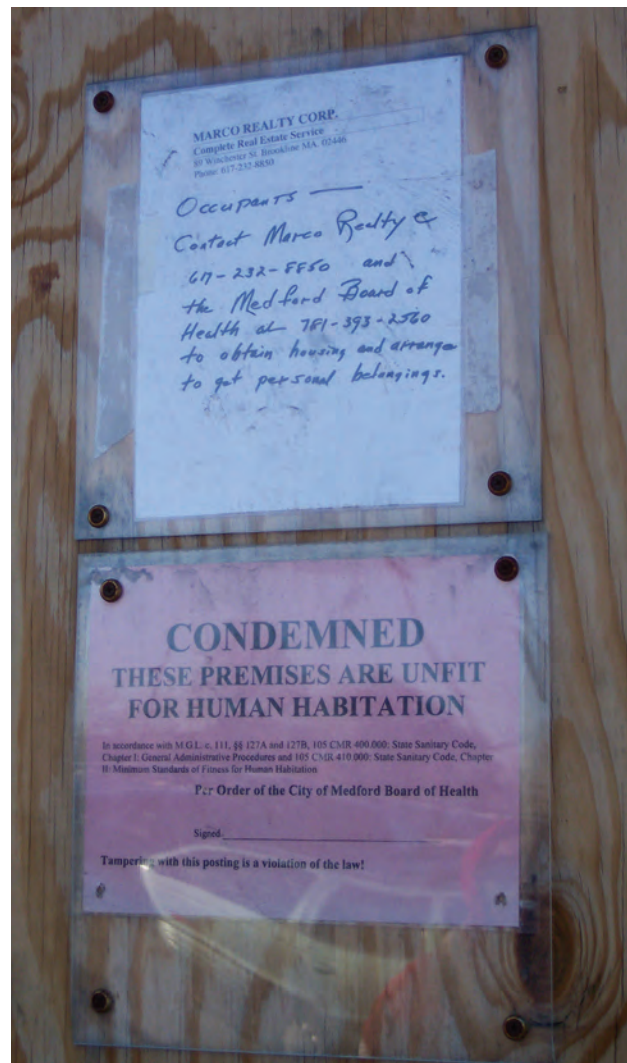 MARCO REALTY CORP.
Complete Real Estate Service
89 Winchester St. Brookline MA. 02446
Phone: 617-232-8850
Occupants —
Contact Marco Realty @
617-232-8850 and
the Medford Board of
Health at 781-393-2560
to obtain housing and arrange
to get personal belongings.
CONDEMNED
THESE PREMISES ARE UNFIT
FOR HUMAN HABITATION
In accordance with M.G.L. c. 111, §§ 127A and 127B, 105 CMR 400.000: State Sanitary Code,
Chapter I: General Administrative Procedures and 105 CMR 410.000: State Sanitary Code, Chapter
II: Minimum Standards of Fitness for Human Habitation
Per Order of the City of Medford Board of Health
Signed
Tampering with this posting is a violation of the law!